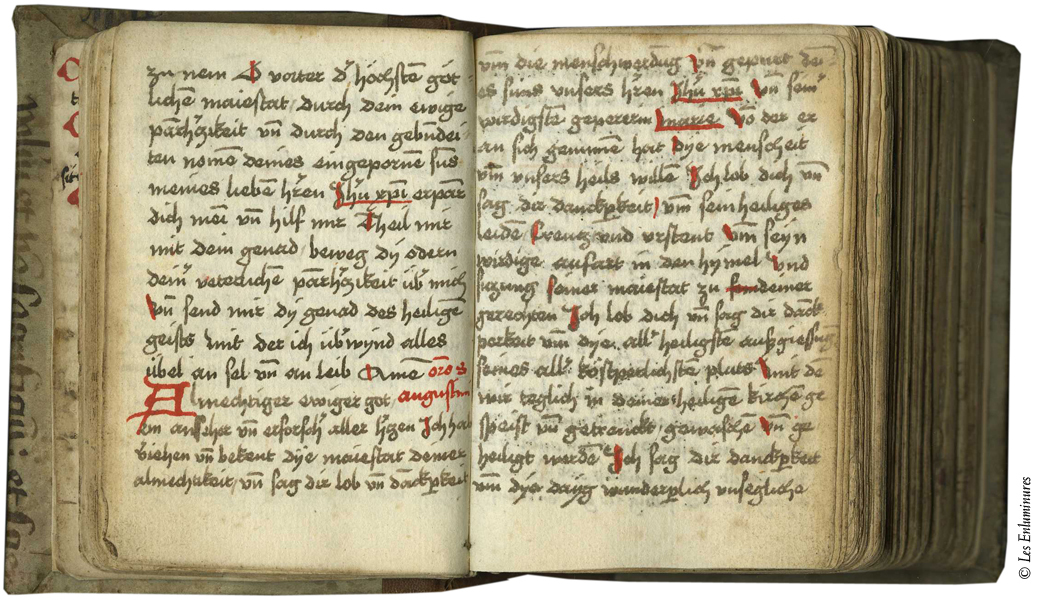 zu nem O vorter d' höchsten göt-
lichen maiestat durch dem ewige
parhʒikeit vn̄ durch den gebndei
ten nomē deines eingepornē suns
meines lieben hr̄en Jhū xp̄i erpar
dich mei vn̄ hilf mir Theil mit
mit dein genad beweg dy odern
dein' veterlichē parhʒikeit üb' mich
Vn̄ send mir dy genad des heiligē
geists mit der ich üb'wynd alles
übel an sel vn̄ an leib Amē orō s
Almechtiger ewiger got augustini
ein anseher vn̄ erforsch' aller h'ʒen Jch hab
viehen vn̄ bekent dye maiestat deiner
almechtikeit vn̄ sag dir lob vn̄ danckperkeit
vm̄ die menschwerdūg vn̄ gepurt dei-
es suns vnsers hr̄en Jhū xp̄i Vn̄ sein
wirdigstē gepererin Marie Vō der er
an sich genumē hat Dye menscheit
vm̄ vnsers heils willē Jch lob dich vn̄
sag dir danckperkeit vm̄ sein heiliges
leidē Creutz vnd vrstent Vm̄ seyn
wirdige aufart in den hymel Vnd
siczung seiner maiestat zu deiner
gerechten Jch lob dich vn̄ sag dir danck
perkeit vm̄ dye all' heiligste außgiessung
seines all' köstperlichste pluts mit dē
wir teglich in deiner heiligē kirchē ge
speist vn̄ getrenckt gewaschē Vn̄ ge
heiligt werdē Jch sag dir danckperkeit
vm̄ dye wunderplich vnsegliche
© Les Enluminures